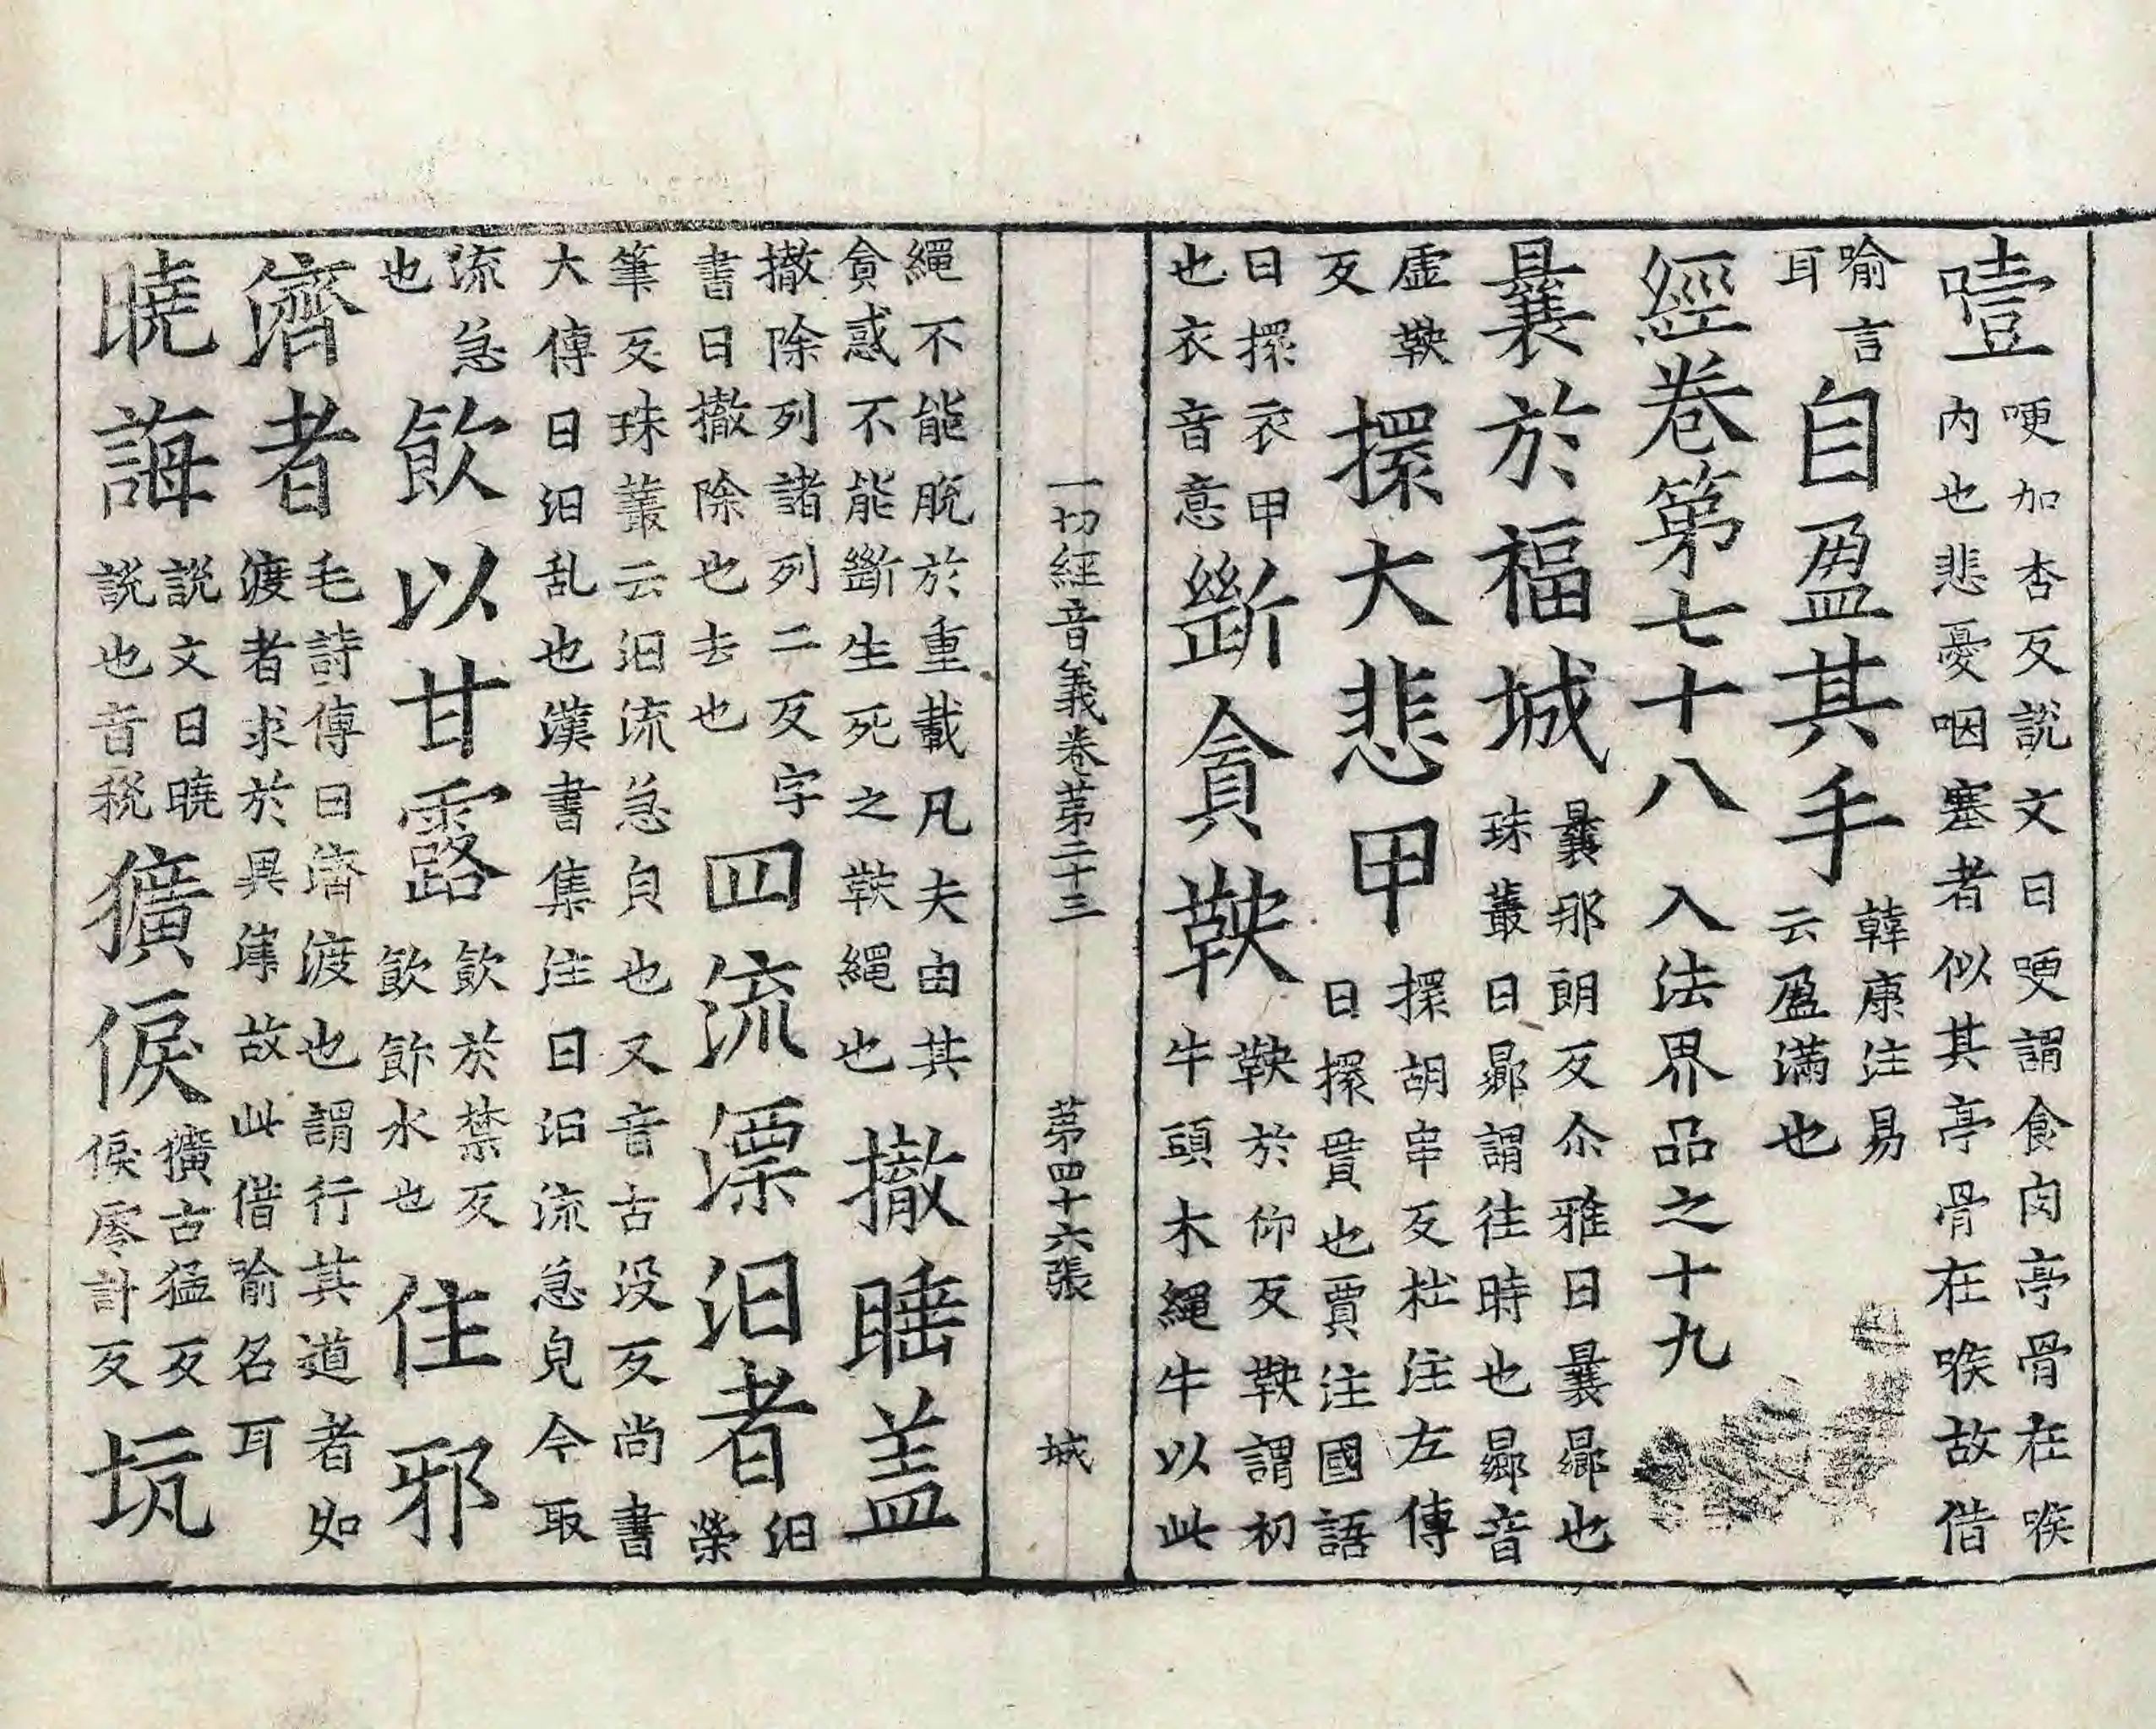 噎哽加杏反說文曰哽謂食肉亭骨在喉
內也悲憂咽塞者似其亭骨在喉故借
喻言耳自盈其手韓康注易云盈滿也
經卷第七十八 入法界品之十九
曩於福城曩那朗反尒雅曰曩曏也
珠叢曰曏謂往時也曏音
虛鞅反擐大悲甲擐胡串反杜注左傳
曰擐貫也賈注國語
曰擐衣甲也衣音意斷貪鞅鞅於仰反鞅謂初
牛頭木繩牛以此
一切經音義卷第二十三 第四十六張 城
繩不能脫於重載凡夫由其
貪惑不能斷生死之鞅繩也撤睡盖
撤除列諸列二反字
書曰撤除也去也四流漂汨者汨
榮
筆反珠叢云汨流急皃也又音古沒反尚書
大傳曰汨乱也漢書集注曰汨流急皃今取
流急也飲以甘露飲於禁反
飲飾水也住邪
濟者毛詩傳曰濟渡也謂行其道者如
渡者求於異津故此借喻名耳
曉誨說文曰曉
說也音稅獷俍獷古猛反
俍零計反坑